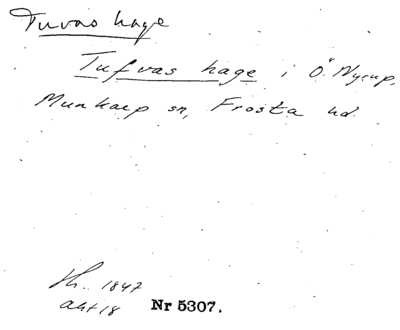 Tuvas hage
Tufvas hage i Ö. Nyrup,
Munkarp sn, Frosta hd.
1847
akt 18 Nr 5307.